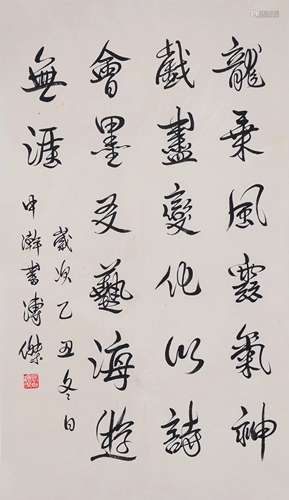 龍乘風雲氣神
戲盡變化以詩
會墨友藝海遊
無涯
歲次乙丑冬日
書溥傑